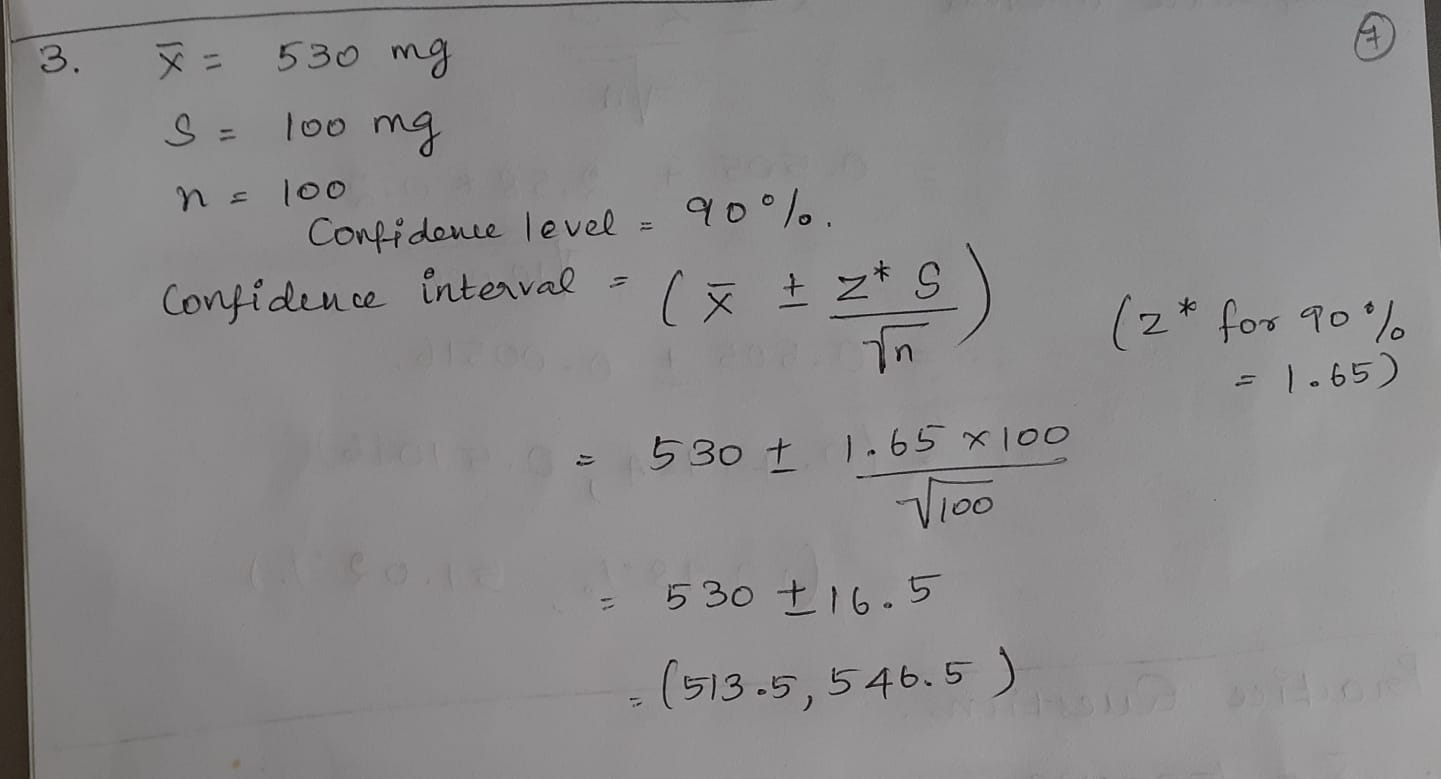 3. x̄ = 530 mg
S = 100 mg
n = 100
Confidence level = 90%.
Confidence interval = ( x̄ ± z* S / √n ) (z* for 90%
= 1.65)
= 530 ± 1.65 × 100 / √100
= 530 ± 16.5
= (513.5, 546.5)